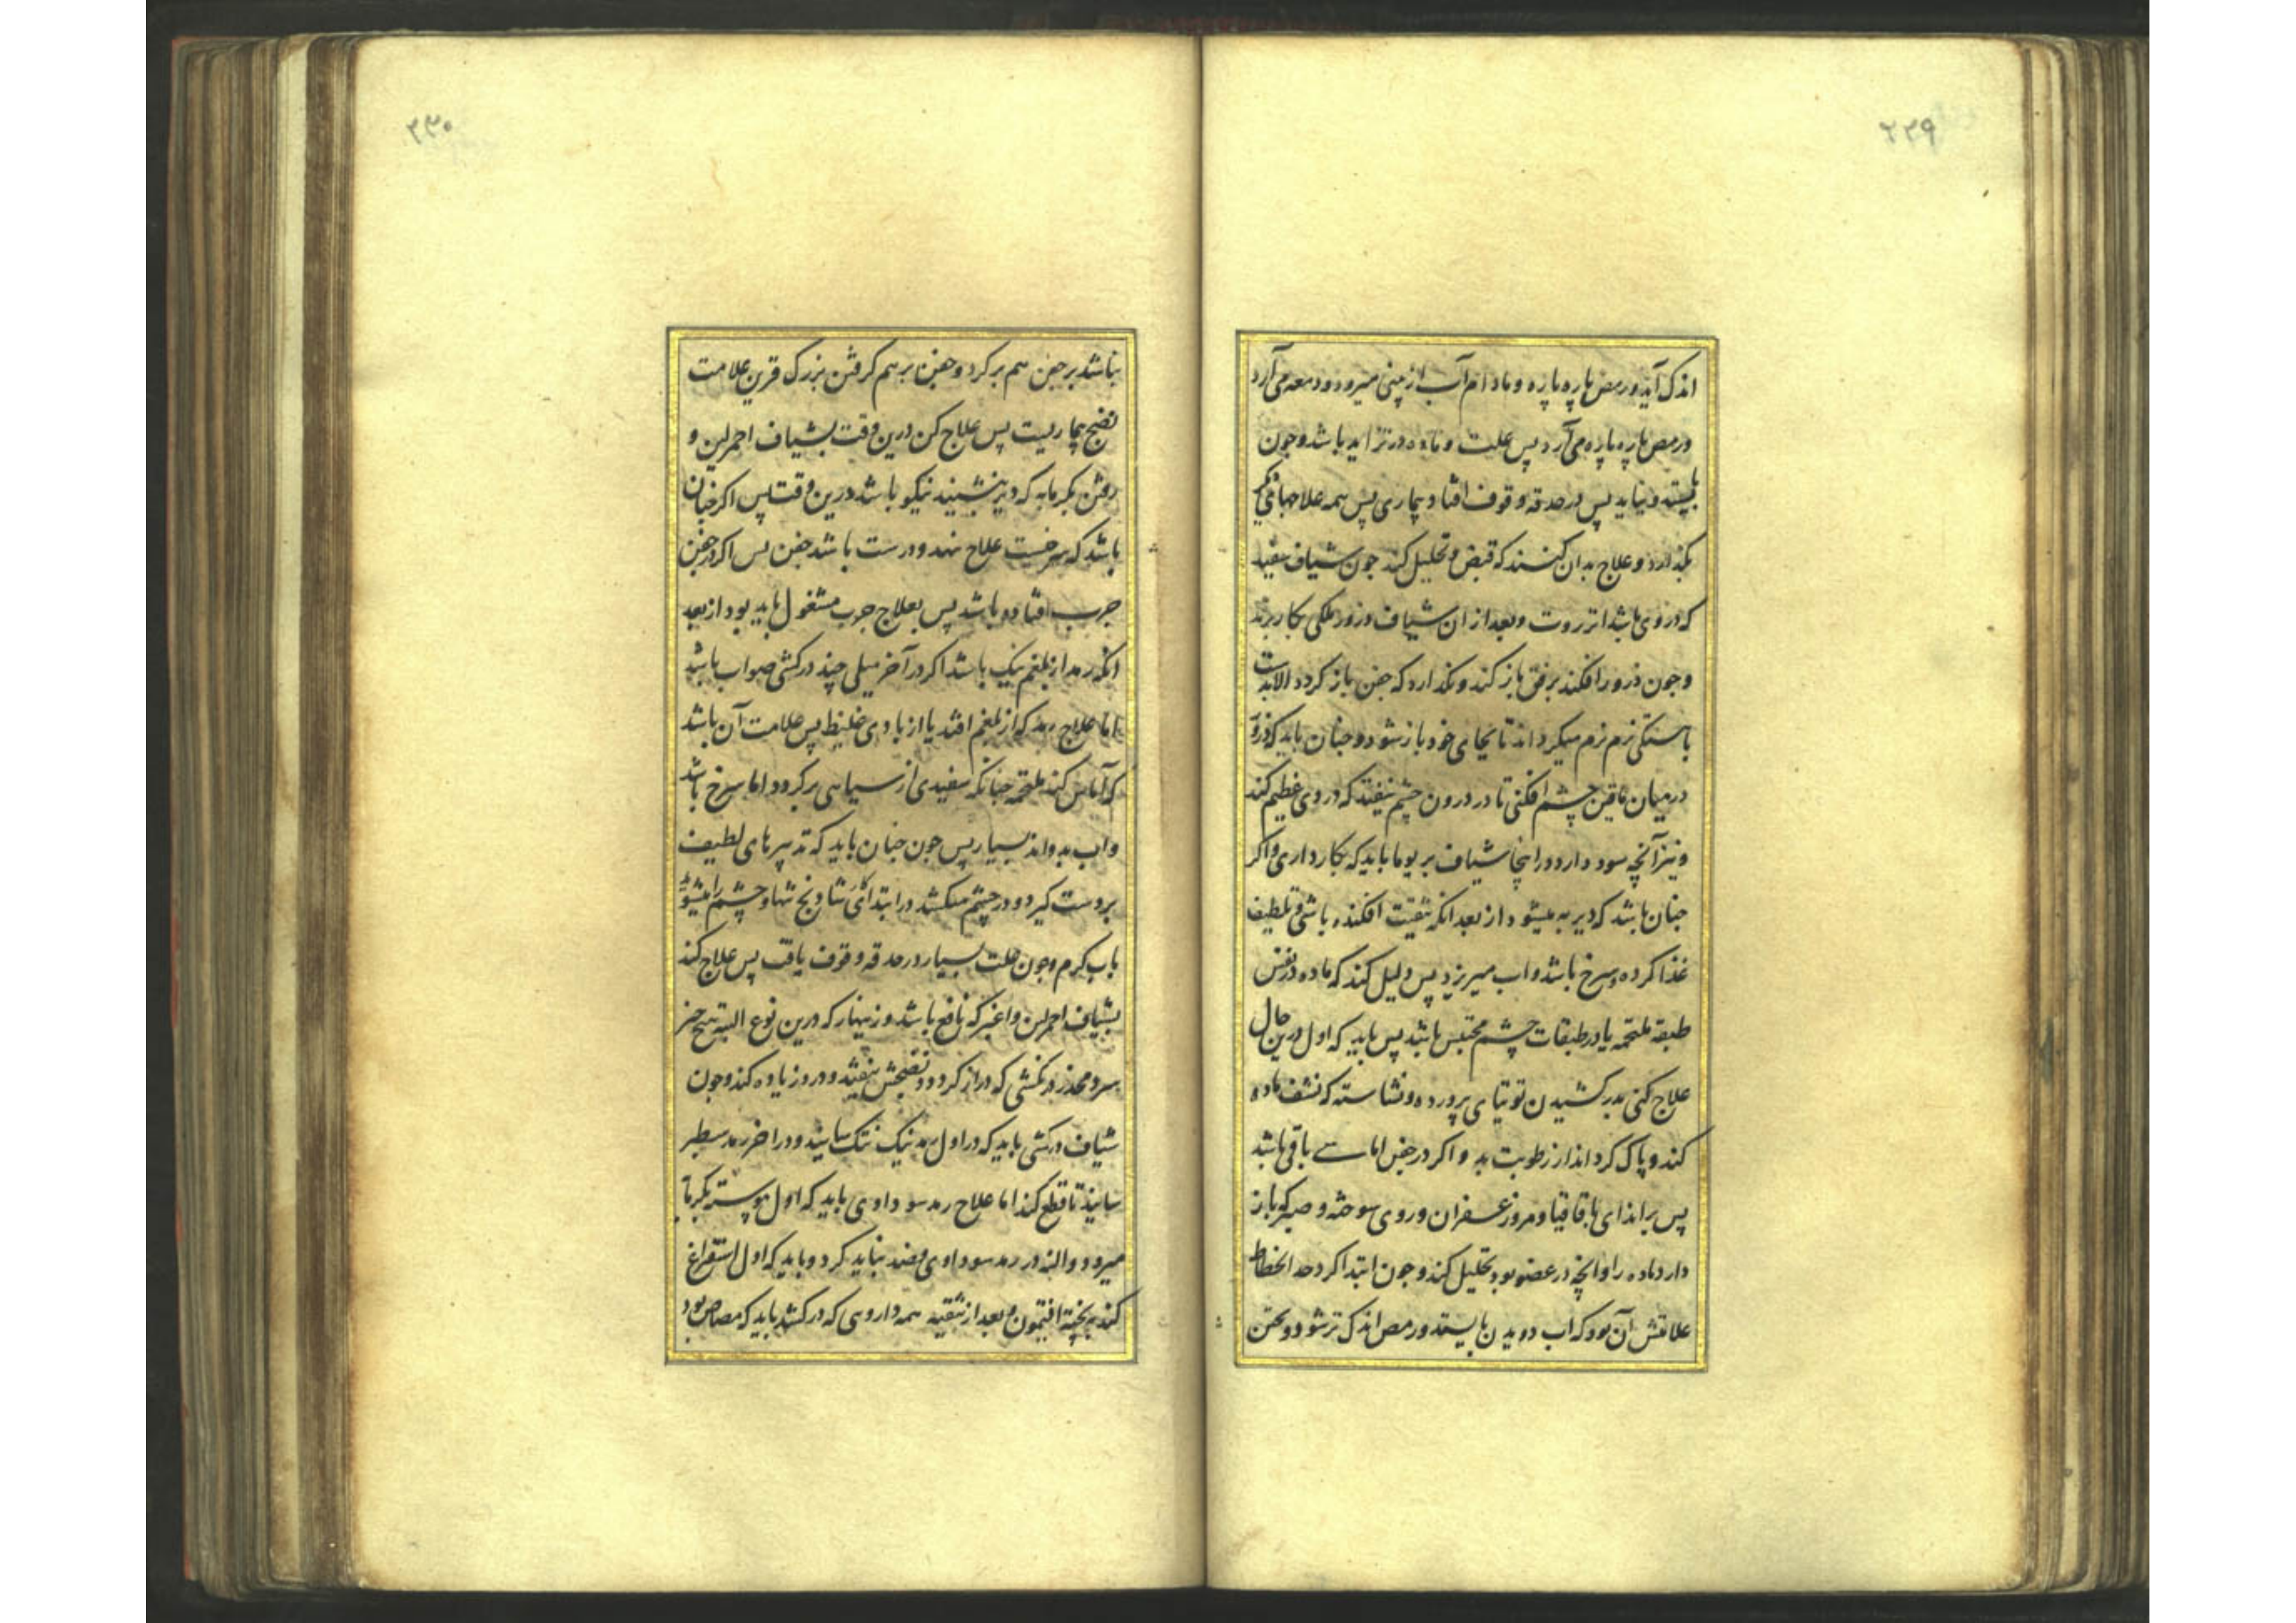 ۲۳۹
اندک آید و رمص پاره پاره و مادام آب از بینی میرود و دمعه می آرد
و رمص پاره پاره می آرد پس علت و ماده در تزاید باشد و جون
بایستد و نیاید پس در حدقه وقوف افتاد بیماری پس همه علاجها
بگذارد و علاج بدان کنند که قبض و تحلیل کند جون شیاف سفید
که در وی باشد انزروت و بعد از ان شیاف و زرور ملکی بکار برند
و جون ذرور افکند برفق باز کند و نگذارد که جفن باز کردد الا بدست
باهستکی نرم نرم میکرداند تا بجای خود باز شود و جنان باید که ذرور
در میان ماقین چشم افکنی تا در درون چشم نیفتد که دروی عظیم کند
و نیز آنچه سود دارد در اینجا شیاف بریوما باید که بکار داری و اکر
جنان باشد که دیر به میشود از بعد انکه تنقیت افکنده باشی و تلطیف
غذا کرده و سرخ باشد و اب میریزد پس دلیل کند که ماده در نفس
طبقه ملتحمه یا در طبقات چشم محتبس باشد پس باید که اول درین حال
علاج کنی بدر کشیدن توتیای پرورده و نشاسته که نشف ماده
کند و پاک کرداند از رطوبت بد و اکر در جفن اماسے باقی باشد
پس براندای باقاقیا و مرو زعفران و روی سوخته و صبر که باز
دارد ماده را و آنچه در عضو بود تحلیل کند و جون ابتدا کرد حد انحطاط
علامتش آن بود که اب دویدن بایستد و رمص اندک تر شود و بختن
۲۳۰
نباشد بر جفن هم بر کرد و جفن بر هم کرفتن بزرک قرین علامت
نضج بیماریست پس علاج کن درین وقت بشیاف احمر لین و
رفتن بکرمابه که دیر بنشیند نیکو باشد درین وقت پس اکر جنان
باشد که به نخست علاج نهد و درست باشد جفن پس اکر در جفن
جرب افتاده باشد پس بعلاج جرب مشغول باید بود از بعد
انکه رمد از بلغم نیک باشد اکر در آخر میلی چند در کشی صواب باشد
اما علاج رمد که از بلغم افتد یا از بادی غلیظ پس علامت آن باشد
که آماس کند ملتحمه جنانکه سفیدی از سیاهی بر کرود اما سرخ باشد
و اب بدواند بسیار پس جون جنان باید که تدبیرهای لطیف
بر دست کیرد و در چشم میکشد در ابتدای شادنج تنها و چشم را میشوید
باب کرم و جون علت بسیار در حدقه وقوف یافت پس علاج کند
بشیاف احمر لین و اغبر که نافع باشد و زینهار که درین نوع البته هیچ جیز
سرد و مخدر در نکشی که دراز کردد و نضجش بیفتد و درد زیاده کند و جون
شیاف در کشی باید که در اول رمد نیک تنک سایند و در اخر رمد سطبر
سایند تا قطع کند اما علاج رمد سوداوی باید که اول پیوسته بکرمابه
میرود و البته در رمد سوداوی فصد نباید کرد و باید که اول استفراغ
کند به پخته افتیمون و بعد از تنقیه همه داروی که در کشد باید که مصاص بود